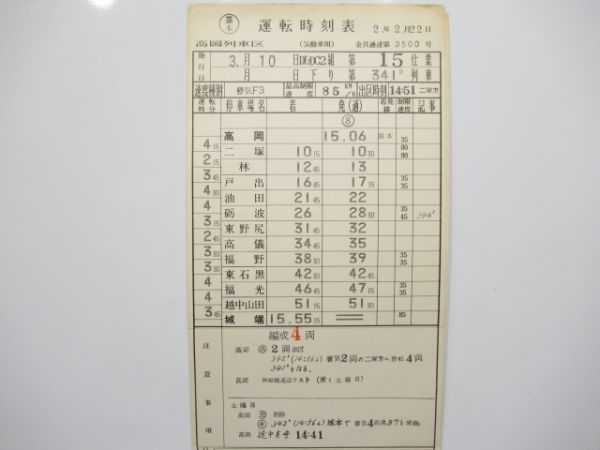 基本 運転時刻表 2年2月22日
高岡列車区 (気動車用) 金共通達第3500号
施行日 3月10日 DMDC2組 第15仕業
月 日 下り 第341D列車
速度種別 停気F3 最高制限速度 85 KM/H 出区時刻 14:51 二塚方
運転時分 停車場名 着 発(通) 着発線 制限速度 記事
⑧
高岡 15.06 35
4 15 二塚 10 15 10 30 80 80
2 15 林 12 45 13
3 45 戸出 16 45 17 15 35 35
4 30 油田 21 45 22
4 砺波 26 28 30 35 45
3 15 東野尻 31 45 32
2 45 高儀 34 45 35
3 30 福野 38 30 39 35 35
3 30 東石黒 42 30 42 45
4 福光 46 45 47 15 35 35
4 越中山田 51 15 51 30
3 45 城端 15.55 15 85
編成4両
注意事項
高岡 2両出区
342D(14:56A)着気2両の二塚方へ併結4両
341Dとなる。
高岡 (除く土曜日)
土曜日
高岡 削除
342D(14:56A)
高岡 途中出区 14:41